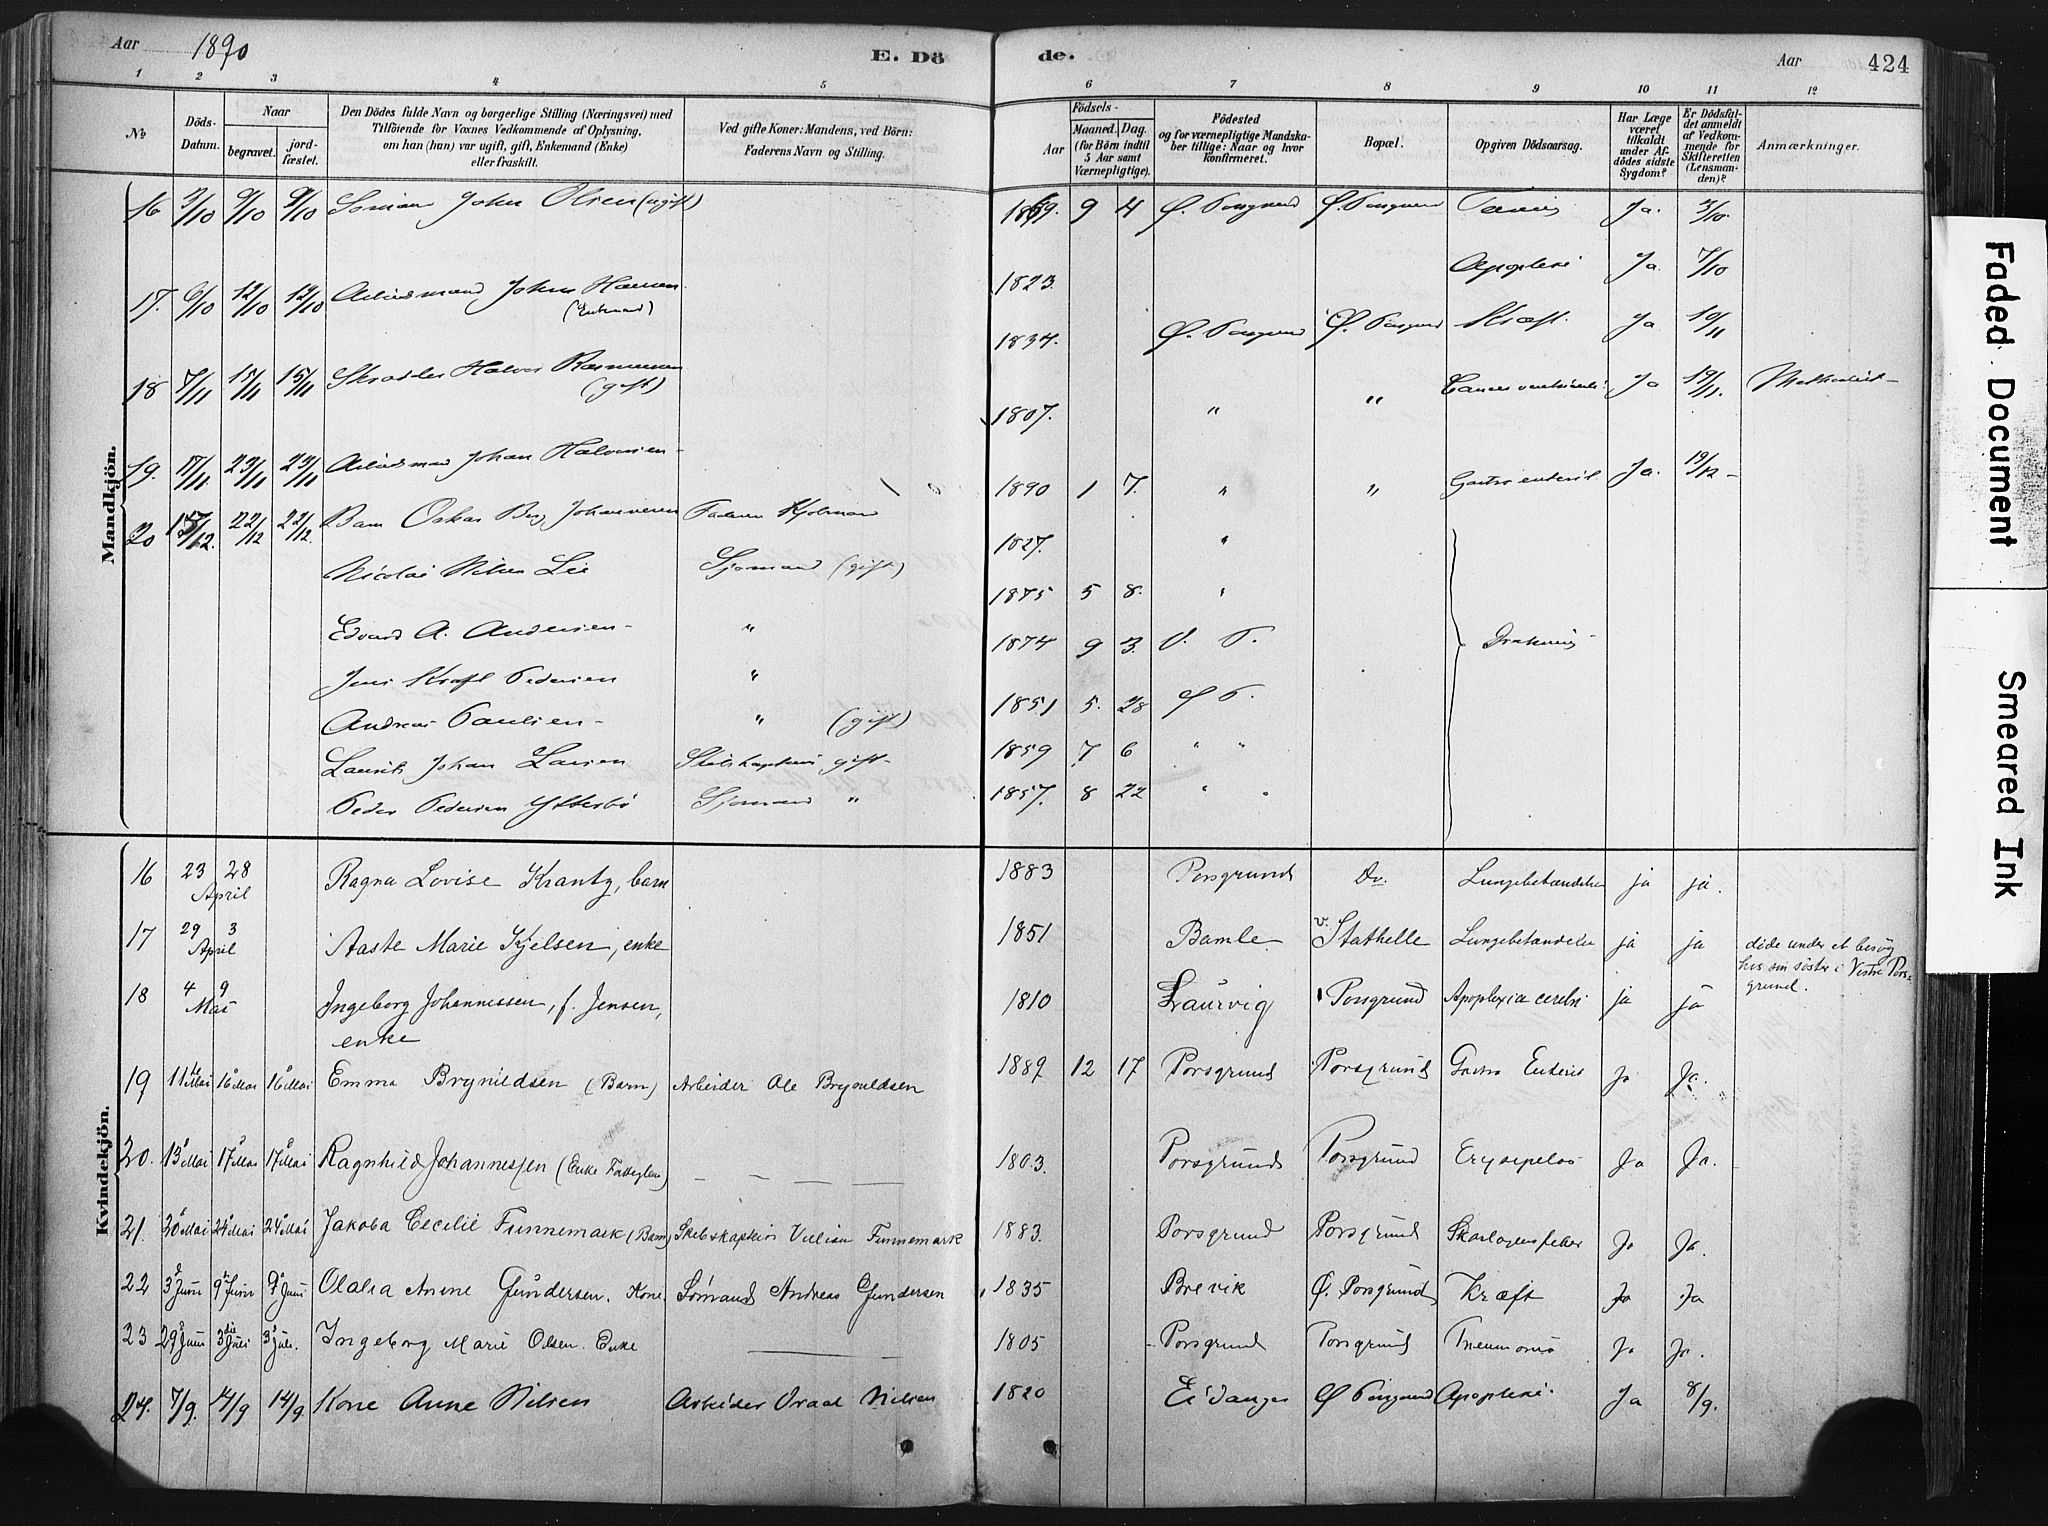 Aar 1890 E. Dö de. Aar 424
1 2 3 4 5 6 7 8 9 10 11 12
No
Döds-Datum.
Naar
begravet. jord-fæstet.
Den Dödes fulde Navn og borgerlige Stilling (Næringsvei) med
Tilföiende for Voxnes Vedkommende af Oplysning,
om han (hun) var ugift, gift, Enkemand (Enke)
eller fraskilt.
Ved gifte Koner: Mandens, ved Börn:
Faderens Navn og Stilling.
Födsels-
Aar Maaned. Dag.
(for Börn indtil
5 Aar samt
Værnepligtige).
Födested
og for værnepligtige Mandska-
ber tillige: Naar og hvor
konfirmeret.
Bopæl.
Opgiven Dödsaarsag.
Har Læge
været
tilkaldt
under Af-
dödes sidste
Sygdom?
Er Dödsfal-
det anmeldt
af Vedkom-
mende for
Skifteretten
(Lensman-
den)?
Anmærkninger.
Mandkjön.
16 3/10 9/10 9/10 John Olsen (ugift) 1869. 9 4 Ø. Porsgrund Ø. Porsgrund Ja. 3/10.
17. 6/10 12/10 12/10 Arbeidsmand John Hansen (Enkemand) 1823. Apoplexi Ja. 7/10
18 7/11 15/11 15/11 Skrædder Halvor Rasmussen (gift) 1834. Ø. Porsgrund Ø. Porsgrund Kræft. Ja 10/11
19. 17/11 23/11 23/11 Arbeidsmand Johan Halvorsen 1807. " " Cancer ventriculi Ja 19/11. Methodist
20 15/12. 22/12 22/12. Barn Oskar Berg Johannesen Faderen 1890 1 7. " " Gastro enterit Ja. 19/12
Nicolai Nilsen Lie Sjømand (gift) 1827. "
Edvard A. Andersen " 1875 5 8. "
Jens Kraft Pedersen " 1874 9 3. V. P. Drukning
Andreas Paulsen " (gift) 1851 5. 28 Ø P.
Laurits Johan Larsen Skibskaptein gift 1859 7 6 " "
Peder Pedersen Ytterbø Sjømand " 1857. 8 22 " "
Kvindekjön.
16 23 28 April Ragna Lovise Krantz, barn 1883 Porsgrund Do. Lungebetændelse ja ja.
17 29 3 April Aaste Marie Kjelsen, enke 1851 Bamle v. Stathelle Lungebetændelse ja ja døde under et besøg
hos sin søster i Vestre Pors-
grund.
18 4 9 Mai Ingeborg Johannessen, f. Jensen, 1810 Laurvig Porsgrund Apoplexia cerebri ja ja
enke
19 11te Mai 16 Mai 16 Mai Emma Brynildsen (Barn) Arbeider Ole Brynildsen 1889 12 17 Porsgrund Porsgrund Gastro Enterit Ja Ja.
20. 13 Mai 17 Mai 17 Mai Ragnhild Johannessen (Enke Fattiglem) — — — — 1803. Porsgrund Porsgrund Erysipelas Ja Ja.
21. 20 Mai 24 Mai 24 Mai Jakoba Cecilie Funnemark (Barn) Skibskaptein Vilian Funnemark 1883. Porsgrund Porsgrund Skarlagensfeber Ja Ja.
22 3 Juni 9 Juni 9 Juni Olalia Anne Gundersen. Kone. Sømand Andreas Gundersen 1835 Brevik Ø. Porsgrund Kræft Ja Ja
23 29 Juni 3die Juli 3 Juli. Ingeborg Marie Olsen. Enke 1805 Porsgrund Porsgrund Pneumonia Ja Ja.
24. 7/9. 14/9 14/9. Kone Anne Nilsen Arbeider Nilsen 1820 Eidanger Ø Porsgrund Apoplexi. Ja 8/9.
Faded Document
Smeared Ink